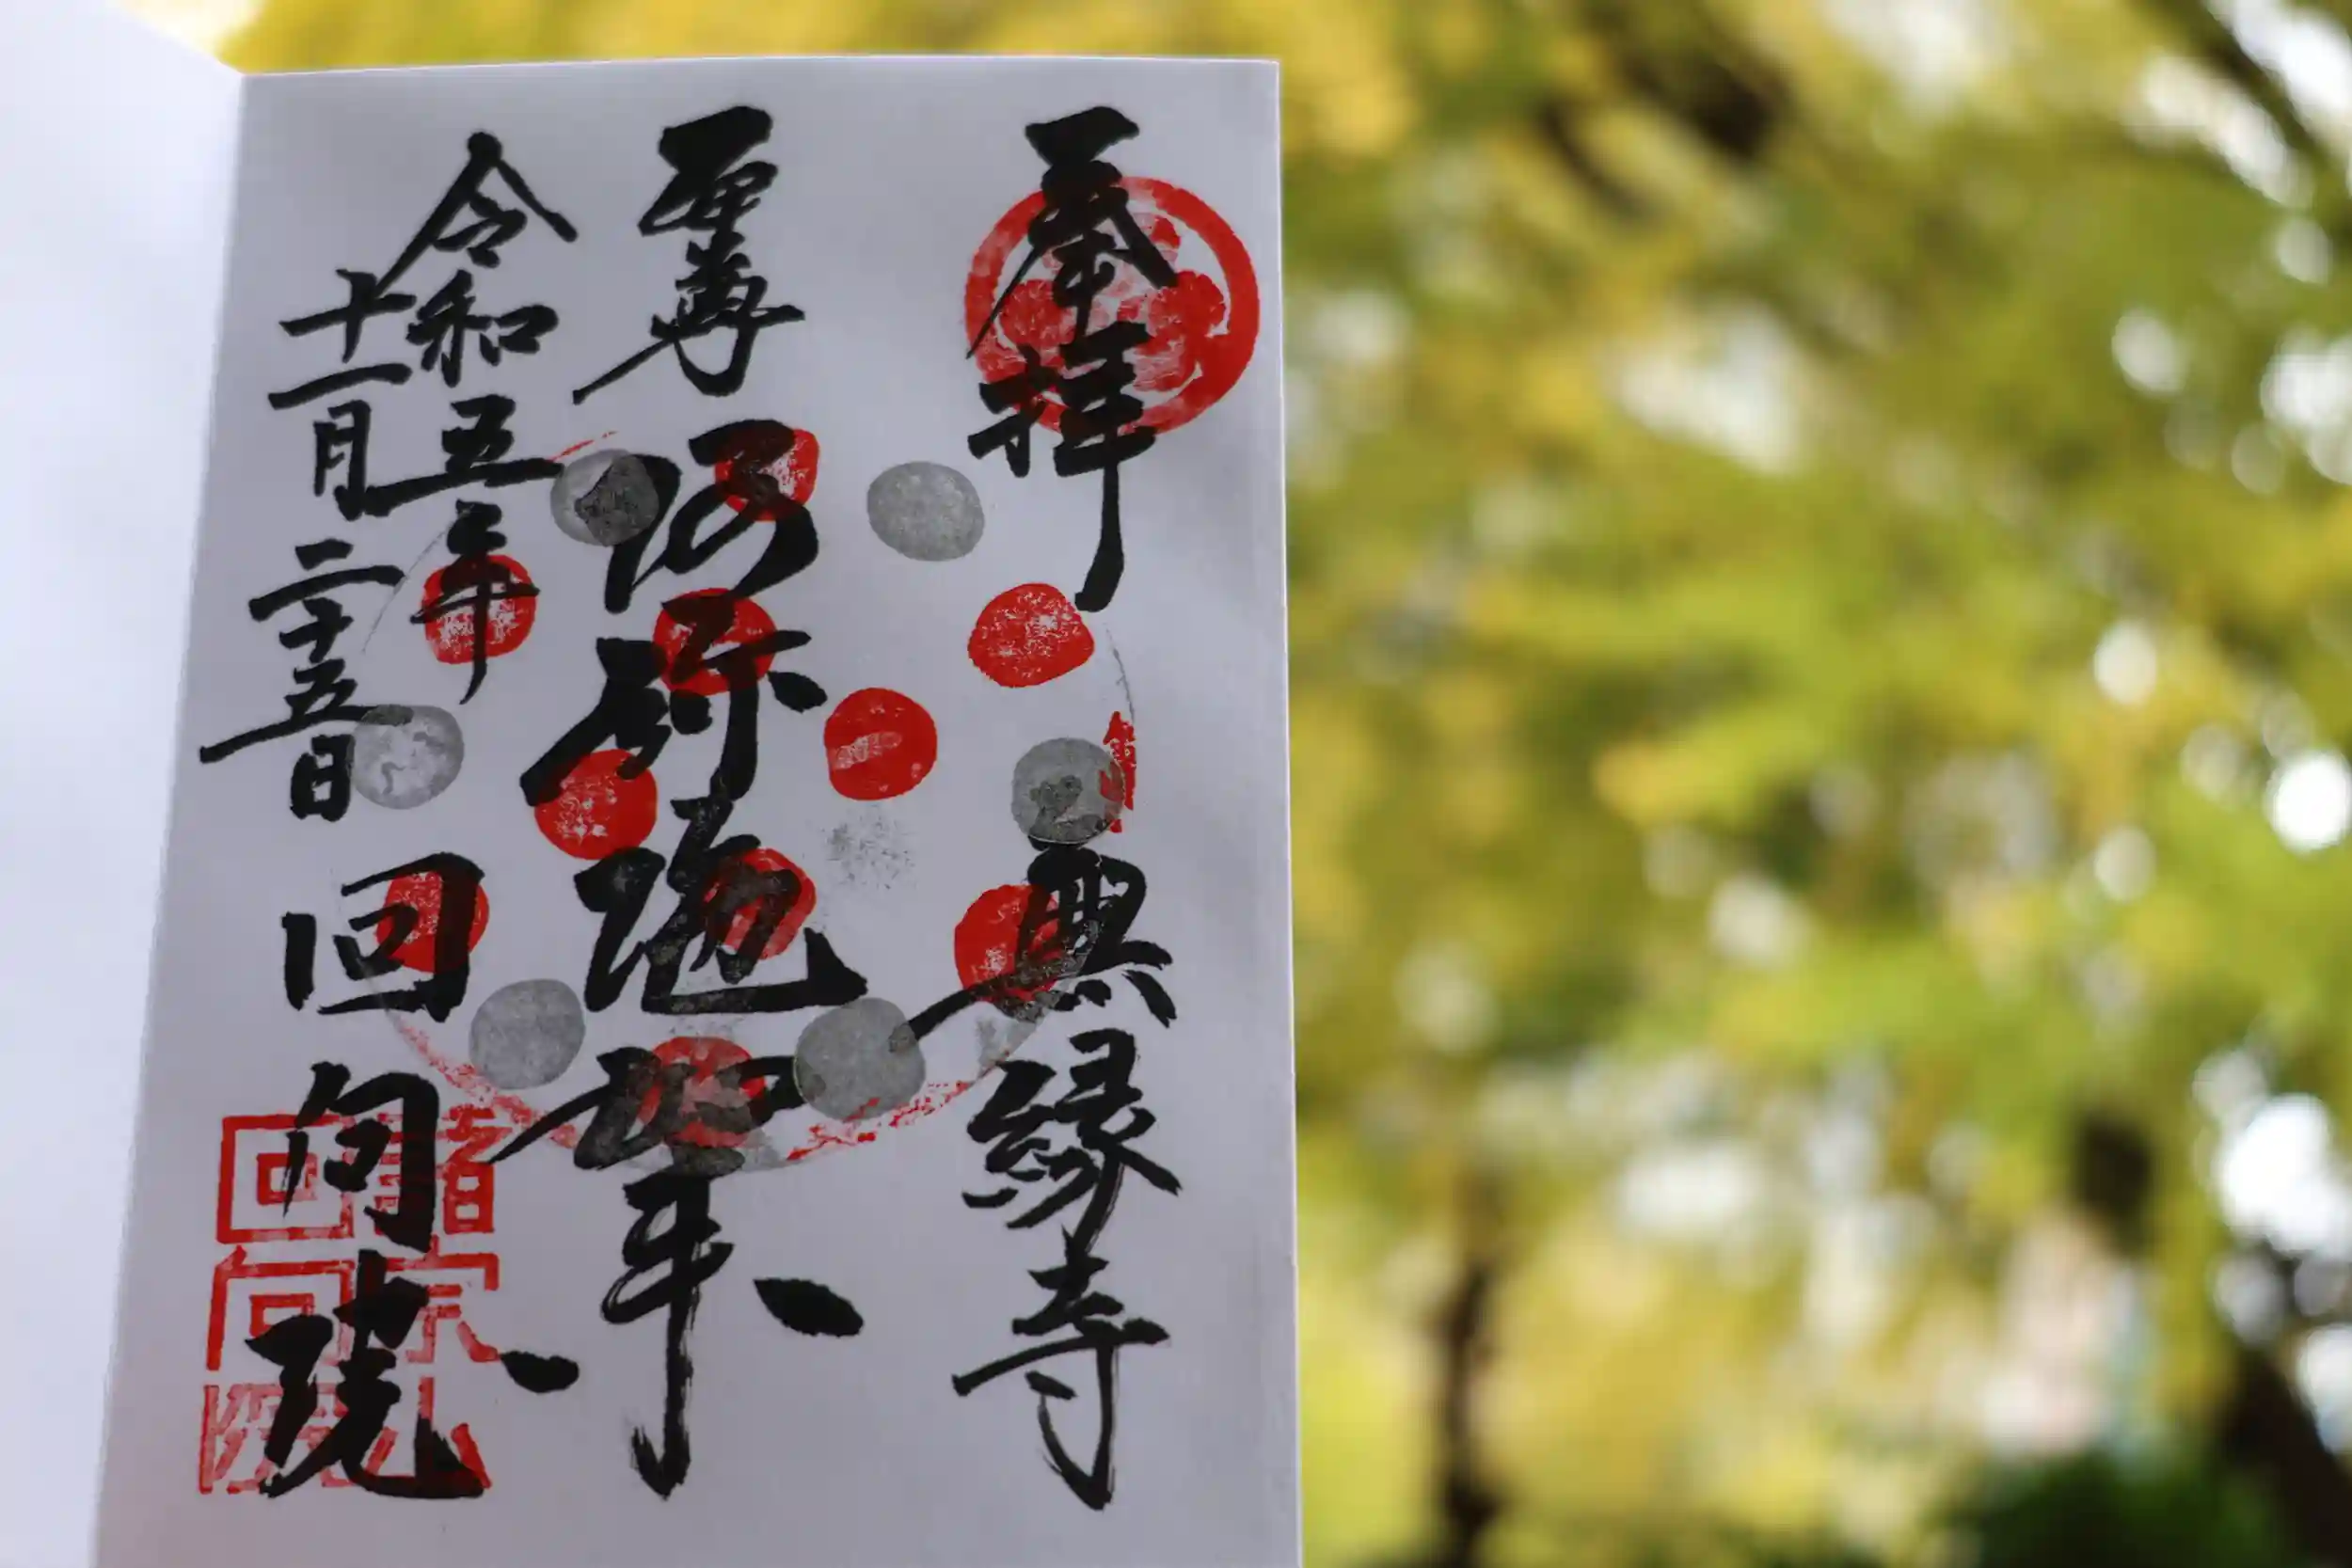 奉拝
無縁寺
阿弥陀如来
令和五年
十一月二十五日
回向院
諸宗山
回向院